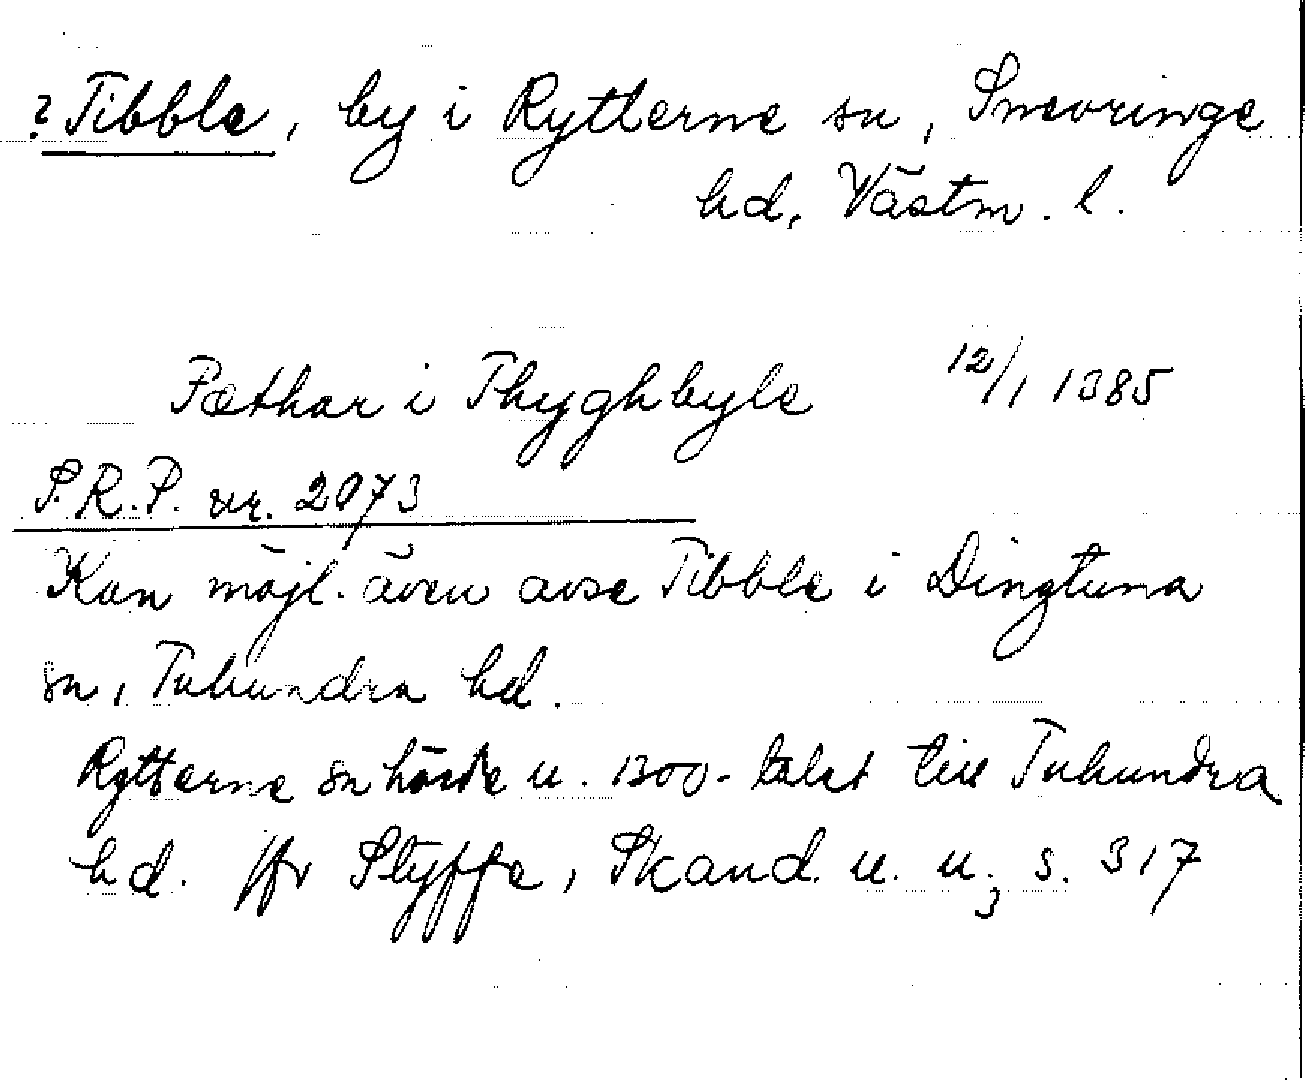 ? Tibble, by i Rytterne sn, Snevringe
hd, Västm. l.
Pæthar i Thyghbyle 12/1 1385
S.R.P. nr. 2073
Kan möjl. även avse Tibble i Dingtuna
sn, Tuhundra hd.
Rytterne sn hörde u. 1300-talet till Tuhundra
hd. jfr Styffe, Skand. u. u.3 s. 317